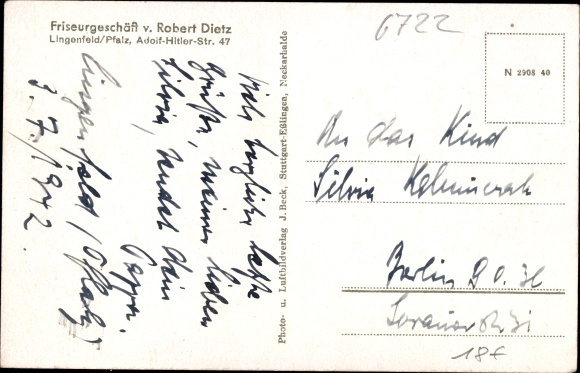 Friseurgeschäft v. Robert Dietz
Lingenfeld/Pfalz, Adolf-Hitler-Str. 47
Lingenfeld/Pfalz
3. 7. 1942.
Viele herzliche
Grüße, meinen lieben
Silvia, sendet Dein
Pappa.
Photo- u. Luftbildverlag J. Beck, Stuttgart-Eßlingen, Neckarhalde
6722
N 2908 40
An das Kind
Silvia
Berlin
18€